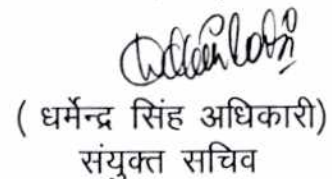 ( धर्मेन्द्र सिंह अधिकारी)
संयुक्त सचिव